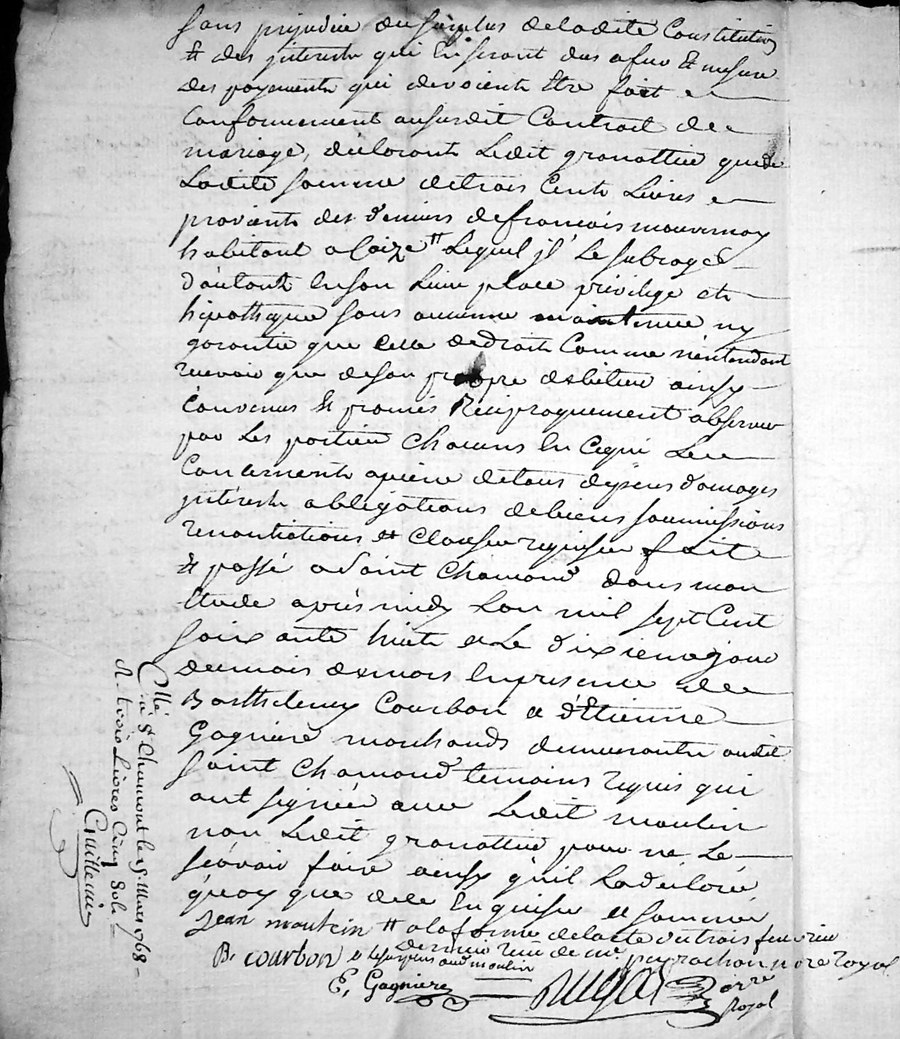 sans prejudice du surplus de ladite Constitution
& des jnterests qui En seront dus a fur & mesure
des payements qui devoient Etre fait
Conformement aususdit Contract de
mariage, déclarant Ledit granottier que
Ladite somme de trois Cents Livres
provient des deniers de francois
habitant a Loize # Lequel jl Le subroge
d'autant En son Lieu place privilege et
hipotheque sans aucune maintenue ny
garantie que Celle de droit Comme n'entendant
recevoir que de son propre debiteur ainsy
Convenus & promis Reciproquement observer
par Les parties Chacune En Ce qui Les
Concernent a peine de tous depens domages
jnterests obligations de biens soumissions
renontiations et Clauses requises fait
& passé a Saint Chamond dans mon
Etude après midy Lan mil sept Cent
soixante huit & Le dixieme jour
du mois de mars En presence de
Barthelemy Courbon & d'Etienne
Gagniere marchands demeurants audit
Saint Chamond temoins requis qui
ont signés avec Ledit moulin
non Ledit granottier pour ne Le
sçavoir faire ainsy qu'il L'a déclaré
de Ce Enquis et sommé
Jean moulin # a la forme de lacte du trois fevrier
dernier reçu de me perrachon nore Royal
B. Courbon & Le surplus aud moulin
E, Gagniere
Royal
Cllé à St Chamont le 15 Mars 1768
R. trois Livres Cinq Sols
Guillemin